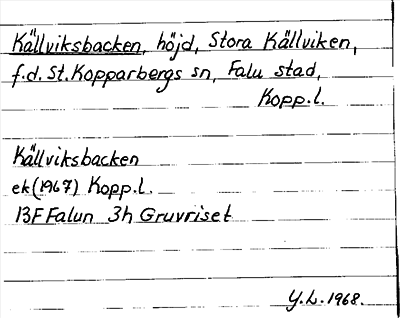 Källviksbacken, höjd, Stora Källviken,
f.d. St. Kopparbergs sn, Falu stad,
Kopp.l.
Källviksbacken
ek(1967) Kopp.l.
13F Falun 3h Gruvriset
Y.L. 1968.